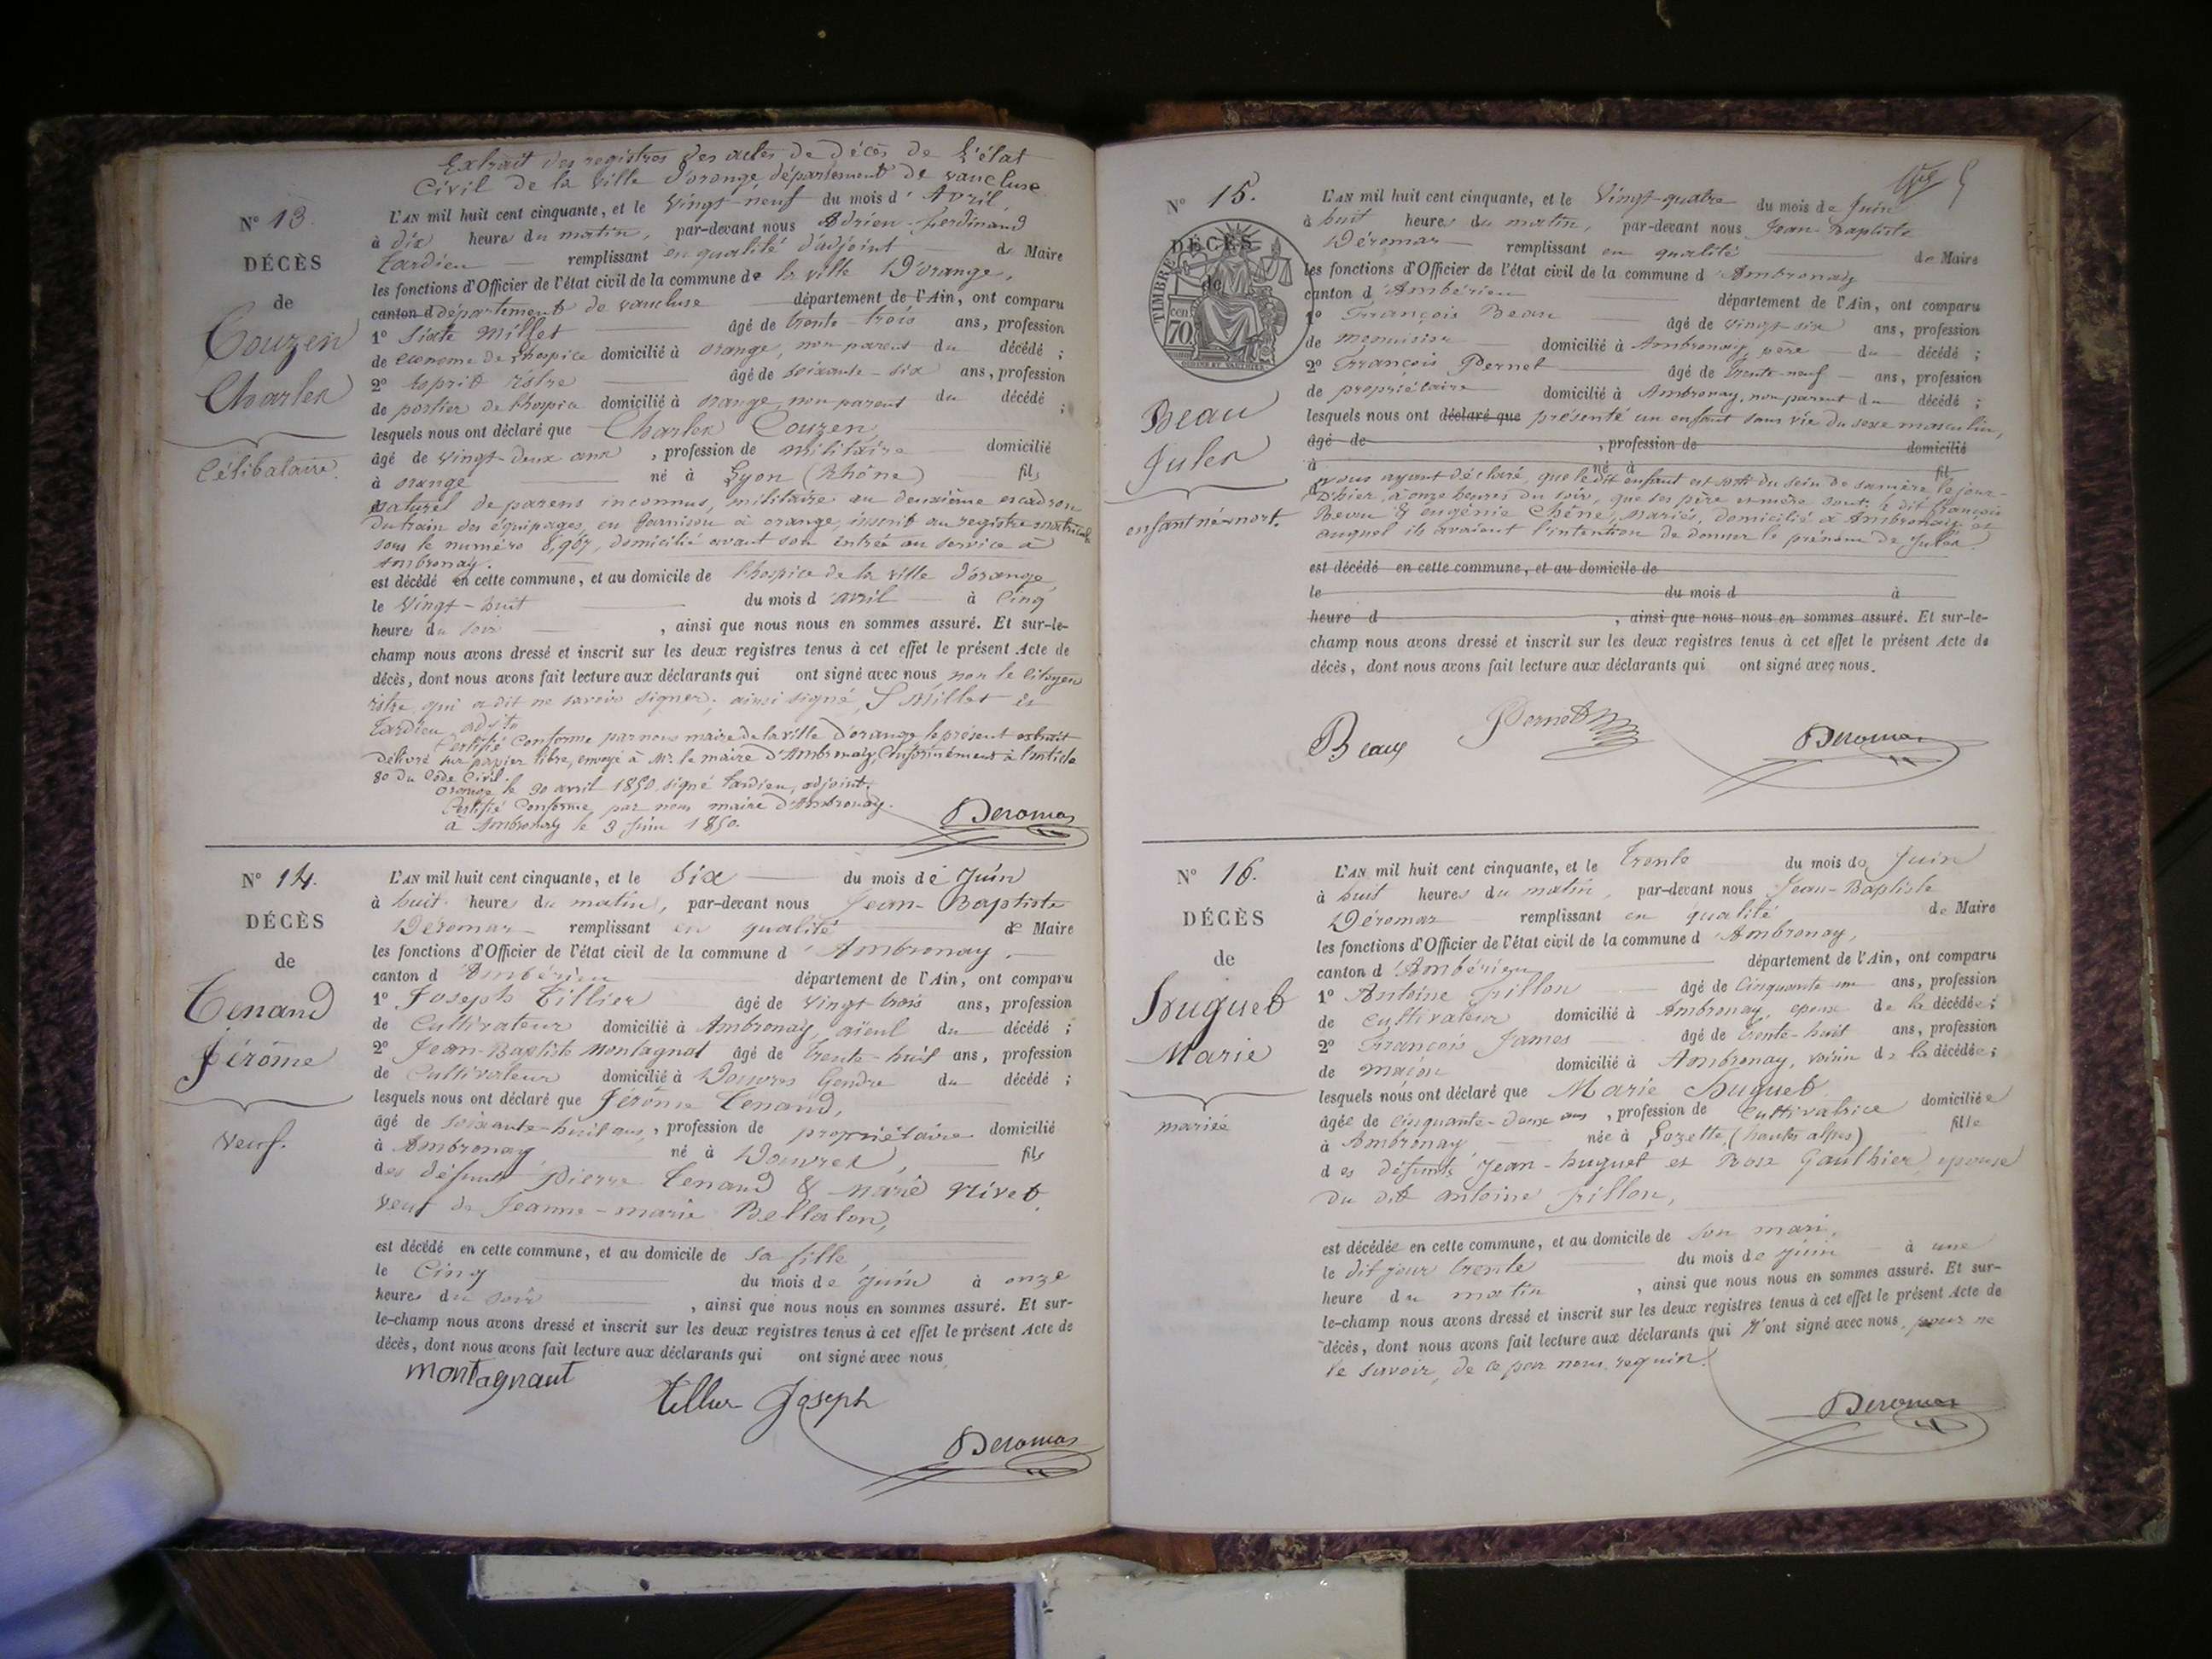 Extrait des registres des actes de décès de l'état
Civil de la ville d'orange, département de vaucluse.
N° 13.
DÉCÈS
de
Couzen
Charles
Célibataire.
L'AN mil huit cent cinquante, et le vingt-neuf du mois d'Avril
à dix heures du matin, par-devant nous Adrien-ferdinand
tardieu remplissant en qualité d'adjoint de Maire
les fonctions d'Officier de l'état civil de la commune de la ville D'orange,
canton d département de vaucluse département de l'Ain, ont comparu
1° Sixte Millet âgé de trente-trois ans, profession
de économe de l'hospice domicilié à orange, non parent du décédé ;
2° Esprit ristre âgé de soixante-six ans, profession
de portier de l'hospice domicilié à orange, non parent du décédé ;
lesquels nous ont déclaré que Charles Couzen,
âgé de vingt-deux ans, profession de militaire domicilié
à orange né à Lyon (Rhône) fils
naturel de parens inconnus, militaire au deuxième escadron
du train des équipages, en garnison à orange, inscrit au registre matricule
sous le numéro 8,967, domicilié avant son entrée au service à
Ambronay.
est décédé en cette commune, et au domicile de l'hospice de la ville d'orange,
le vingt-huit du mois d'avril à cinq
heures du soir, ainsi que nous nous en sommes assuré. Et sur-le-
champ nous avons dressé et inscrit sur les deux registres tenus à cet effet le présent Acte de
décès, dont nous avons fait lecture aux déclarants qui ont signé avec nous, non le citoyen
ristre qui a dit ne savoir signer; ainsi signé, S Millet et
tardieu adjt
Certifié conforme par nous maire de la ville d'orange le présent extrait
délivré sur papier libre, envoyé à Mr. le maire d'Ambronay, Conformément à l'article
80 du Code Civil.
Orange le 30 avril 1850, signé tardieu, adjoint.
Certifié Conforme par nous maire d'Ambronay.
à Ambronay le 3 Juin 1850.
Deromas
N° 14.
DÉCÈS
de
Tenand
Jérôme
veuf.
L'AN mil huit cent cinquante, et le Six du mois de Juin
à huit heures du matin, par-devant nous Jean-Baptiste
Déromas remplissant en qualité de Maire
les fonctions d'Officier de l'état civil de la commune d'Ambronay,
canton d'Ambérieu département de l'Ain, ont comparu
1° Joseph Tillier âgé de vingt trois ans, profession
de Cultivateur domicilié à Ambronay, aïeul du décédé ;
2° Jean-Baptiste Montagnat âgé de trente-huit ans, profession
de Cultivateur domicilié à Douvres Gendre du décédé ;
lesquels nous ont déclaré que Jérôme Tenand,
âgé de soixante-huit ans, profession de propriétaire domicilié
à Ambronay né à Douvres, fils
des défunts Pierre Tenand & marie Nivet
veuf de Jeanne-marie Bellaton,
est décédé en cette commune, et au domicile de sa fille
le Cinq du mois de Juin à onze
heures du soir, ainsi que nous nous en sommes assuré. Et sur-
le-champ nous avons dressé et inscrit sur les deux registres tenus à cet effet le présent Acte de
décès, dont nous avons fait lecture aux déclarants qui ont signé avec nous,
montagnaut
tellier Joseph
Deromas
N° 15.
TIMBRE
cen
70
DÉCÈS
de
Beau
Jules
enfant né-mort.
L'AN mil huit cent cinquante, et le Vingt-quatre du mois de Juin
à huit heures du matin, par-devant nous Jean-Baptiste
Déromas remplissant en qualité de Maire
les fonctions d'Officier de l'état civil de la commune d'Ambronay
canton d'Ambérieu département de l'Ain, ont comparu
1° François Beau âgé de vingt-six ans, profession
de menuisier domicilié à Ambronay, père du décédé ;
2° François Pernet âgé de trente-neuf ans, profession
de propriétaire domicilié à Ambronay, non parent du décédé ;
lesquels nous ont déclaré que présenté un enfant sans vie du sexe masculin,
âgé de, profession de domicilié
à né à fil
nous ayant déclaré, que le dit enfant est sorti du sein de sa mère le jour
D'hier, à onze heures du soir, que ses père et mère sont, le dit françois
Beau & eugénie Chêne, mariés, domicilié à Ambronay et
auquel ils avaient l'intention de donner le prénom de Jules.
est décédé en cette commune, et au domicile de
le du mois d à
heure d, ainsi que nous nous en sommes assuré. Et sur-le-
champ nous avons dressé et inscrit sur les deux registres tenus à cet effet le présent Acte de
décès, dont nous avons fait lecture aux déclarants qui ont signé avec nous.
Beau
Pernet
Deromas
N° 16.
DÉCÈS
de
huguet
Marie
mariée
L'AN mil huit cent cinquante, et le trente du mois de Juin
à huit heures du matin, par-devant nous Jean-Baptiste
Déromas remplissant en qualité de Maire
les fonctions d'Officier de l'état civil de la commune d'Ambronay,
canton d'Ambérieu département de l'Ain, ont comparu
1° Antoine frillon âgé de Cinquante un ans, profession
de cultivateur domicilié à Ambronay, époux de la décédée ;
2° François James âgé de trente-huit ans, profession
de maçon domicilié à Ambronay, voisin de la décédée ;
lesquels nous ont déclaré que Marie huguet
âgée de cinquante-deux ans, profession de Cultivatrice domiciliée
à Ambronay née à Lazette (hautes alpes) fille
des défunts Jean-huguet et Rose Gaulthier, épouse
du dit antoine frillon,
est décédée en cette commune, et au domicile de son mari,
le dit jour trente du mois de juin à une
heure du matin, ainsi que nous nous en sommes assuré. Et sur-
le-champ nous avons dressé et inscrit sur les deux registres tenus à cet effet le présent Acte de
décès, dont nous avons fait lecture aux déclarants qui n'ont signé avec nous, pour ne
le savoir, de ce par nous requis.
Deromas